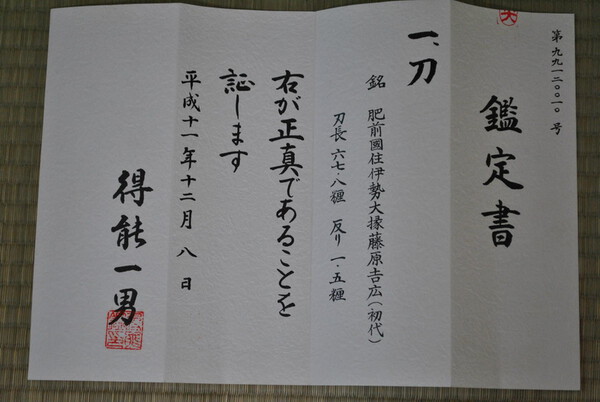 第九九一二〇〇一〇号
鑑定書
一、刀
銘 肥前國住伊勢大掾藤原吉広(初代)
刃長 六七・八糎 反り 一・五糎
右が正真であることを
証します
平成十一年十二月八日
得能一男